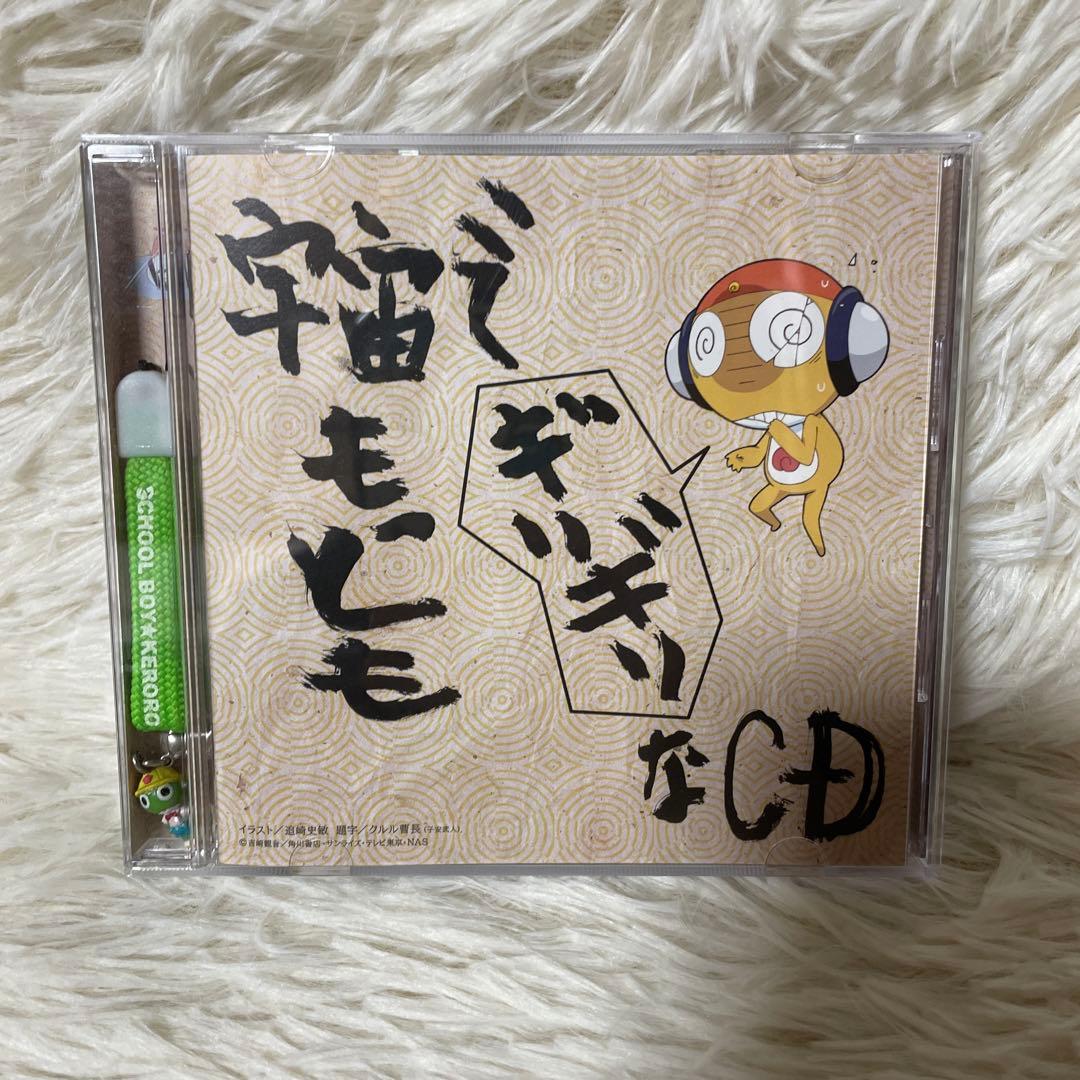 宇宙で
もっとも
ギリギリ
なCD
SCHOOL BOY★KERORO
イラスト/追崎史敏 題字/クルル曹長(子安武人)
©吉崎観音/角川書店・サンライズ・テレビ東京・NAS